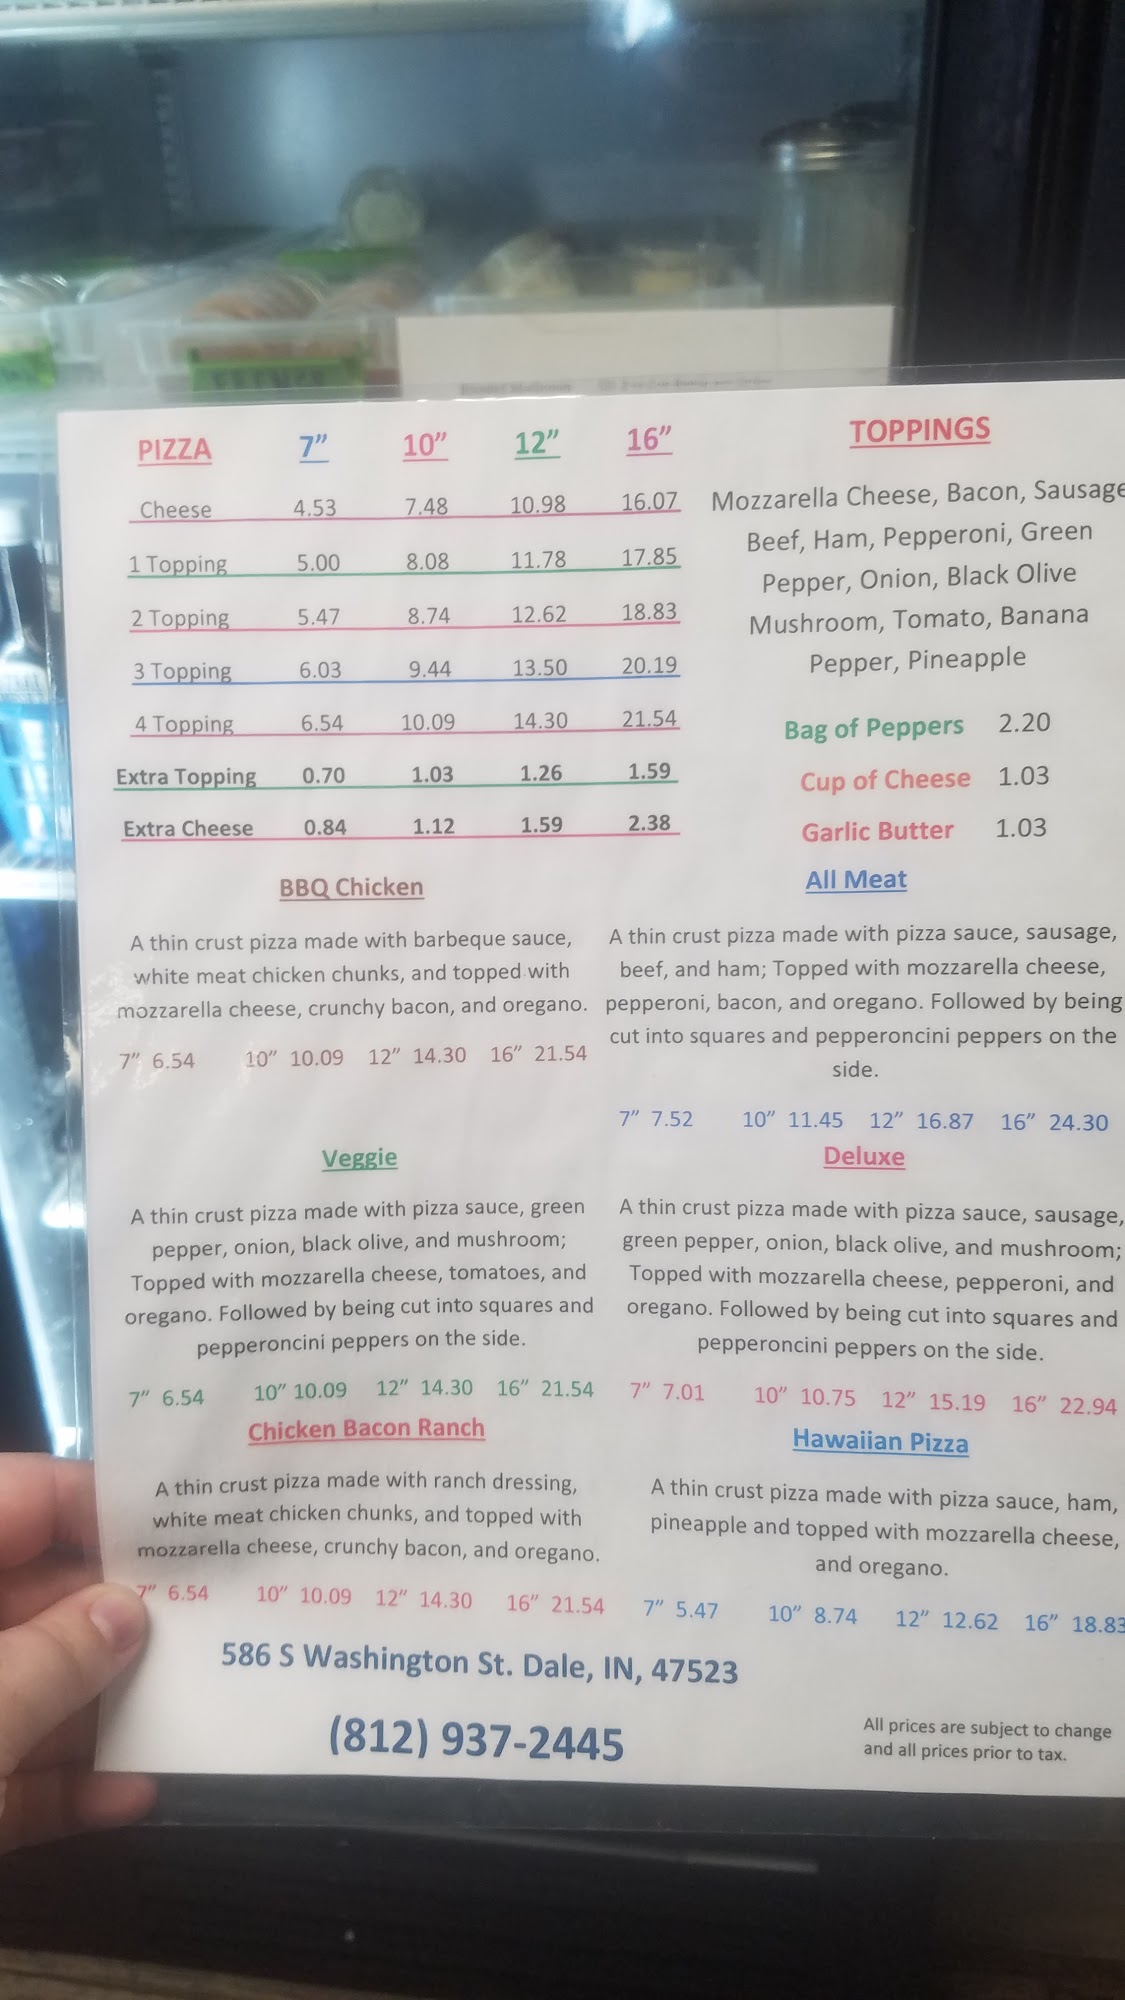 PIZZA 7” 10” 12” 16”
Cheese 4.53 7.48 10.98 16.07
1 Topping 5.00 8.08 11.78 17.85
2 Topping 5.47 8.74 12.62 18.83
3 Topping 6.03 9.44 13.50 20.19
4 Topping 6.54 10.09 14.30 21.54
Extra Topping 0.70 1.03 1.26 1.59
Extra Cheese 0.84 1.12 1.59 2.38
TOPPINGS
Mozzarella Cheese, Bacon, Sausage
Beef, Ham, Pepperoni, Green
Pepper, Onion, Black Olive
Mushroom, Tomato, Banana
Pepper, Pineapple
Bag of Peppers 2.20
Cup of Cheese 1.03
Garlic Butter 1.03
BBQ Chicken
A thin crust pizza made with barbeque sauce,
white meat chicken chunks, and topped with
mozzarella cheese, crunchy bacon, and oregano.
7” 6.54 10” 10.09 12” 14.30 16” 21.54
All Meat
A thin crust pizza made with pizza sauce, sausage,
beef, and ham; Topped with mozzarella cheese,
pepperoni, bacon, and oregano. Followed by being
cut into squares and pepperoncini peppers on the
side.
7” 7.52 10” 11.45 12” 16.87 16” 24.30
Veggie
A thin crust pizza made with pizza sauce, green
pepper, onion, black olive, and mushroom;
Topped with mozzarella cheese, tomatoes, and
oregano. Followed by being cut into squares and
pepperoncini peppers on the side.
7” 6.54 10” 10.09 12” 14.30 16” 21.54
Deluxe
A thin crust pizza made with pizza sauce, sausage,
green pepper, onion, black olive, and mushroom;
Topped with mozzarella cheese, pepperoni, and
oregano. Followed by being cut into squares and
pepperoncini peppers on the side.
7” 7.01 10” 10.75 12” 15.19 16” 22.94
Chicken Bacon Ranch
A thin crust pizza made with ranch dressing,
white meat chicken chunks, and topped with
mozzarella cheese, crunchy bacon, and oregano.
7” 6.54 10” 10.09 12” 14.30 16” 21.54
Hawaiian Pizza
A thin crust pizza made with pizza sauce, ham,
pineapple and topped with mozzarella cheese,
and oregano.
7” 5.47 10” 8.74 12” 12.62 16” 18.83
586 S Washington St. Dale, IN, 47523
(812) 937-2445
All prices are subject to change
and all prices prior to tax.